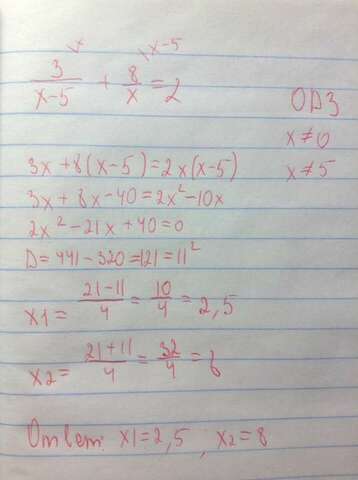 x x-5
3/(x-5) + 8/x = 2
ОДЗ
x≠0
x≠5
3x+8(x-5)=2x(x-5)
3x+8x-40=2x²-10x
2x²-21x+40=0
D=441-320=121=11²
x1= (21-11)/4 = 10/4 = 2,5
x2= (21+11)/4 = 32/4 = 8
Ответ: x1=2,5, x2=8